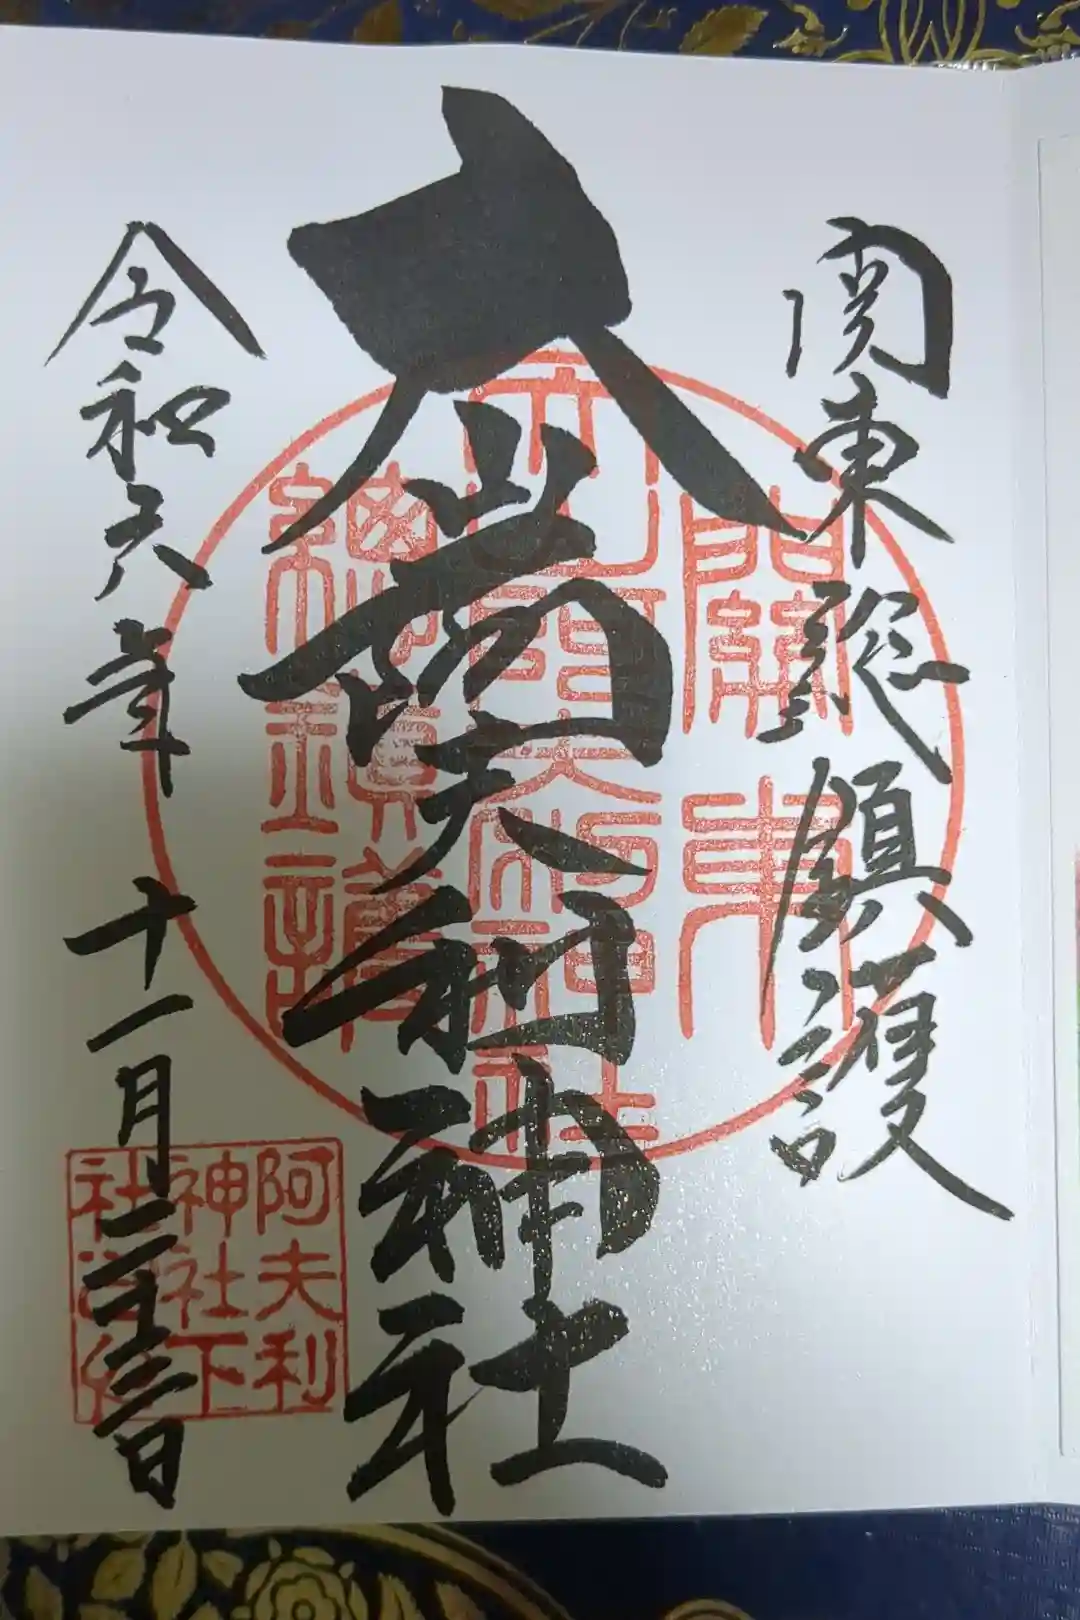 関東総鎮護
大山阿夫利神社
令和六年十一月二十三日
關東
大山阿夫利神社
總鎮護
阿夫利
神社下
社